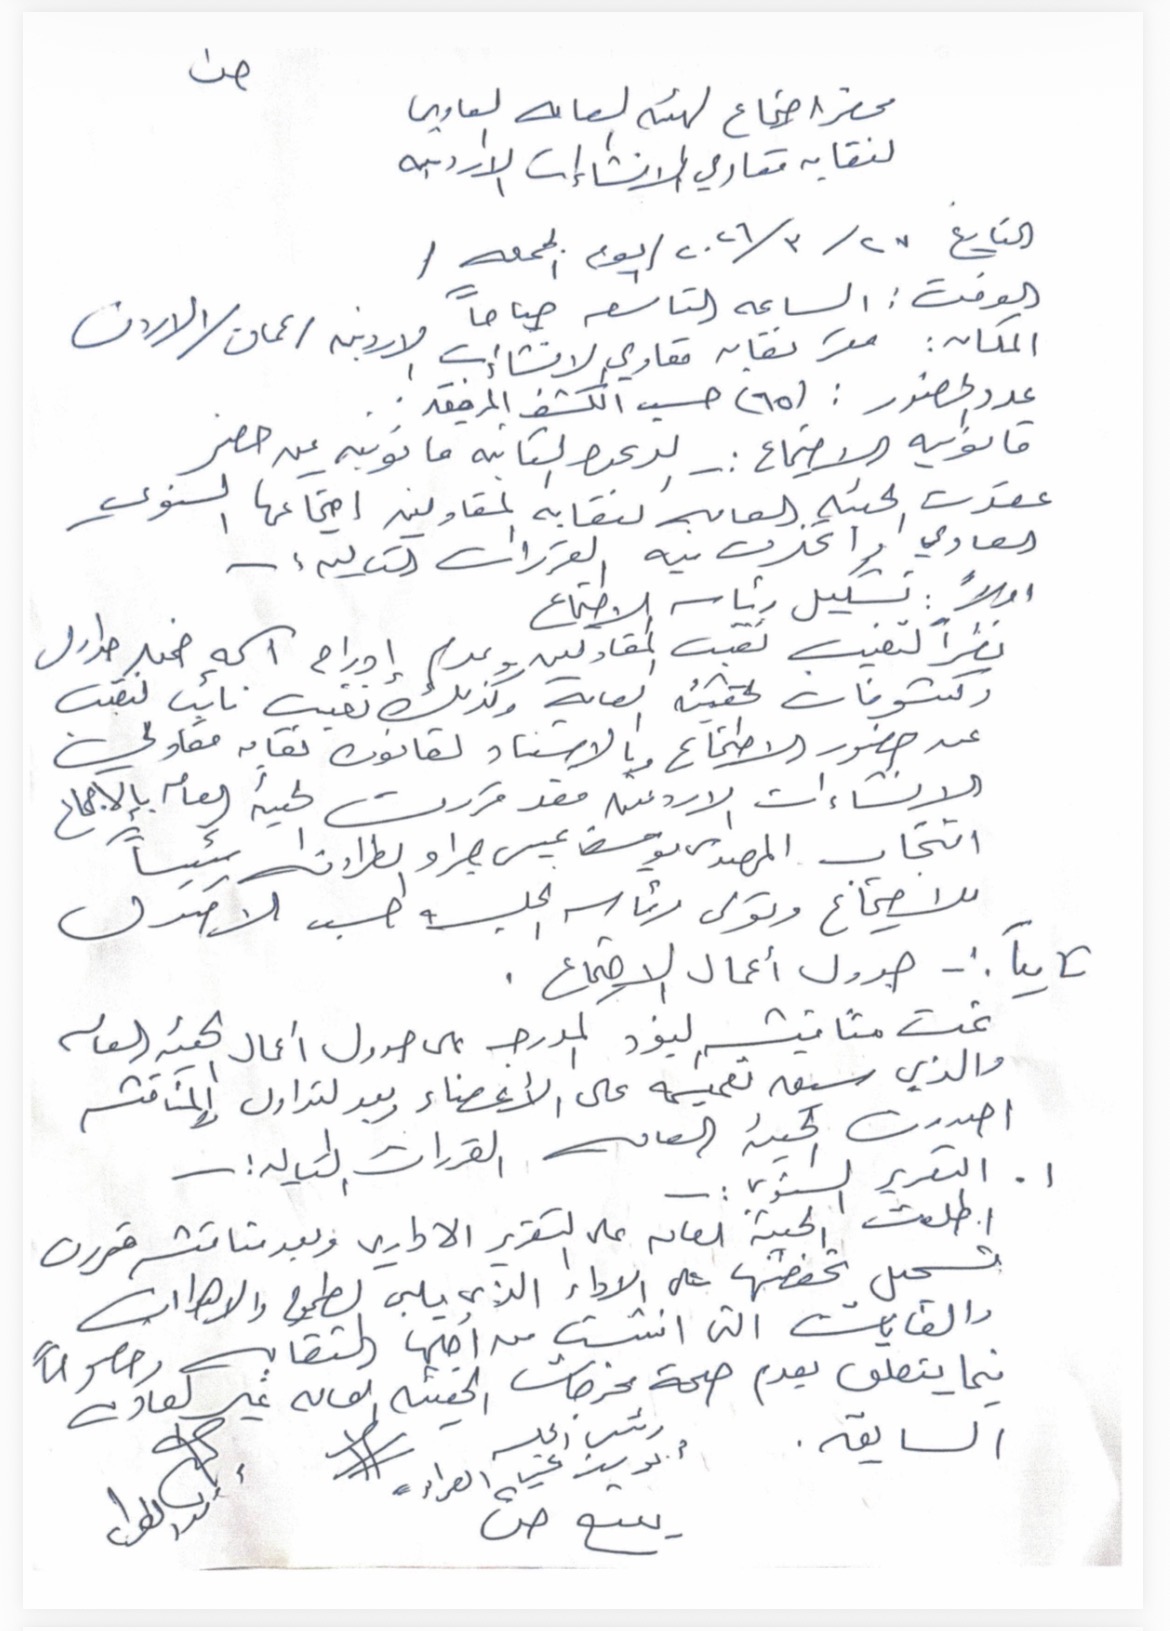 ص١
محضر اجتماع الهيئة العامة العادي
لنقابة مقاولي الانشاءات الاردنية
التاريخ ٢٧ / ٣ / ٢٠٢٦ / يوم الجمعة /
الوقت : الساعة التاسعة صباحاً
المكان : مقر نقابة مقاولي الانشاءات الاردنية / عمان / الاردن
عدد الحضور : (٦٥) حسب الكشف المرفق .
قانونية الاجتماع :- الدعوة الثانية قانونية بمن حضر
عقدت الهيئة العامة لنقابة المقاولين اجتماعها السنوي
العادي واتخذت فيه القرارات التالية :-
اولاً : تشكيل رئاسة الاجتماع
نظراً لتغيب نقيب المقاولين وعدم إدراج اسمه ضمن جداول
وكشوفات الهيئة العامة وكذلك تغيب نائب النقيب
عن حضور الاجتماع وبالاستناد لقانون نقابة مقاولي
الانشاءات الاردنية فقد قررت الهيئة العامة بالإجماع
انتخاب المهندس يوسف عيسى الطراونة رئيساً
للاجتماع وتولى رئاسة الجلسة حسب الاصول
ثانياً :- جدول أعمال الاجتماع .
تمت مناقشة البنود المدرجة على جدول أعمال الهيئة العامة
والذي سبق تعميمه على الأعضاء وبعد التداول والمناقشة
اصدرت الهيئة العامة القرارات التالية :-
١. التقرير السنوي :-
اطلعت الهيئة العامة على التقرير الاداري وبعد مناقشته قررت
تسجيل تحفظها على الاداء الذي يلبي الطموح والاهداف
والغايات التي انشئت من أجلها النقابة وخصوصاً
فيما يتعلق بعدم صحة مخرجات الهيئة العامة غير العادية
السابقة .
رئيس الجلسة
يتبع ص٢